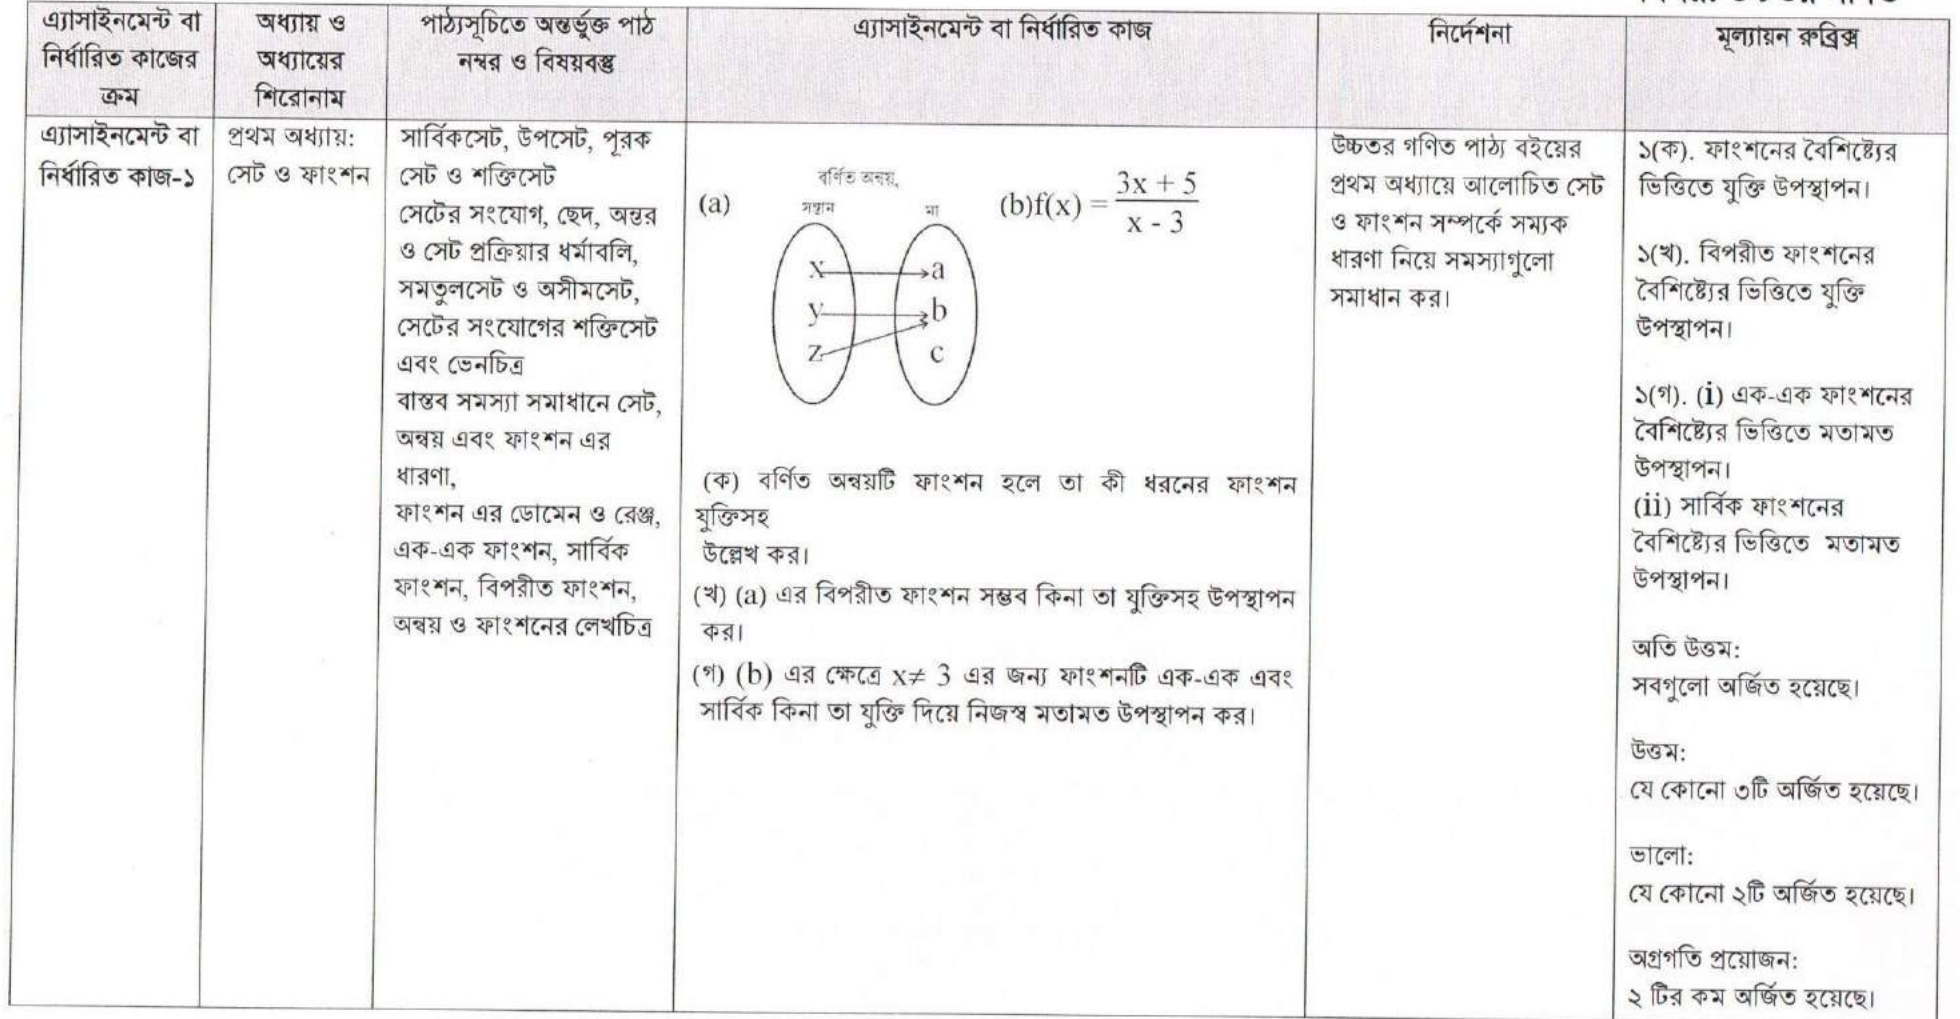 এ্যাসাইনমেন্ট বা
নির্ধারিত কাজের
ক্রম
অধ্যায় ও
অধ্যায়ের
শিরোনাম
পাঠ্যসূচিতে অন্তর্ভুক্ত পাঠ
নম্বর ও বিষয়বস্তু
এ্যাসাইনমেন্ট বা নির্ধারিত কাজ
নির্দেশনা
মূল্যায়ন রুব্রিক্স
এ্যাসাইনমেন্ট বা
নির্ধারিত কাজ-১
প্রথম অধ্যায়:
সেট ও ফাংশন
সার্বিকসেট, উপসেট, পূরক
সেট ও শক্তিসেট
সেটের সংযোগ, ছেদ, অন্তর
ও সেট প্রক্রিয়ার ধর্মাবলি,
সমতুলসেট ও অসীমসেট,
সেটের সংযোগের শক্তিসেট
এবং ভেনচিত্র
বাস্তব সমস্যা সমাধানে সেট,
অন্বয় এবং ফাংশন এর
ধারণা,
ফাংশন এর ডোমেন ও রেঞ্জ,
এক-এক ফাংশন, সার্বিক
ফাংশন, বিপরীত ফাংশন,
অন্বয় ও ফাংশনের লেখচিত্র
বর্ণিত অন্বয়,
(a) সন্তান মা
x a
y b
z c
(b)f(x) = \frac{3x + 5}{x - 3}
(ক) বর্ণিত অন্বয়টি ফাংশন হলে তা কী ধরনের ফাংশন
যুক্তিসহ
উল্লেখ কর।
(খ) (a) এর বিপরীত ফাংশন সম্ভব কিনা তা যুক্তিসহ উপস্থাপন
কর।
(গ) (b) এর ক্ষেত্রে x≠ 3 এর জন্য ফাংশনটি এক-এক এবং
সার্বিক কিনা তা যুক্তি দিয়ে নিজস্ব মতামত উপস্থাপন কর।
উচ্চতর গণিত পাঠ্য বইয়ের
প্রথম অধ্যায়ে আলোচিত সেট
ও ফাংশন সম্পর্কে সম্যক
ধারণা নিয়ে সমস্যাগুলো
সমাধান কর।
১(ক). ফাংশনের বৈশিষ্ট্যের
ভিত্তিতে যুক্তি উপস্থাপন।
১(খ). বিপরীত ফাংশনের
বৈশিষ্ট্যের ভিত্তিতে যুক্তি
উপস্থাপন।
১(গ). (i) এক-এক ফাংশনের
বৈশিষ্ট্যের ভিত্তিতে মতামত
উপস্থাপন।
(ii) সার্বিক ফাংশনের
বৈশিষ্ট্যের ভিত্তিতে মতামত
উপস্থাপন।
অতি উত্তম:
সবগুলো অর্জিত হয়েছে।
উত্তম:
যে কোনো ৩টি অর্জিত হয়েছে।
ভালো:
যে কোনো ২টি অর্জিত হয়েছে।
অগ্রগতি প্রয়োজন:
২ টির কম অর্জিত হয়েছে।